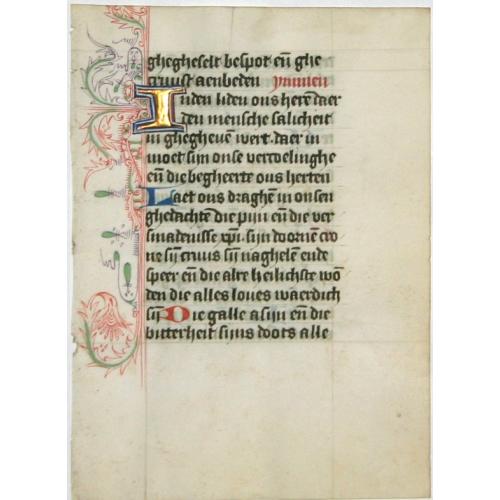 ghegheselt bespot eñ ghe
cruust aenbeden ymmen
Inden liden ons herē daer
den mensche salicheit
in ghegheuē wert daer in
moet sijn onse veroeiinghe
eñ die begheerte ons herten
Laet ons draghē in onsen
ghedachtē die pijn eñ die ver
smadenisse xpi. sijn doornē cro
ne sij cruus sij naghelen ende
speer eñ die alre heilichste wō
den die alles loues waerdich
sij Die galle asijn eñ die
bitterheit sijns doots alle